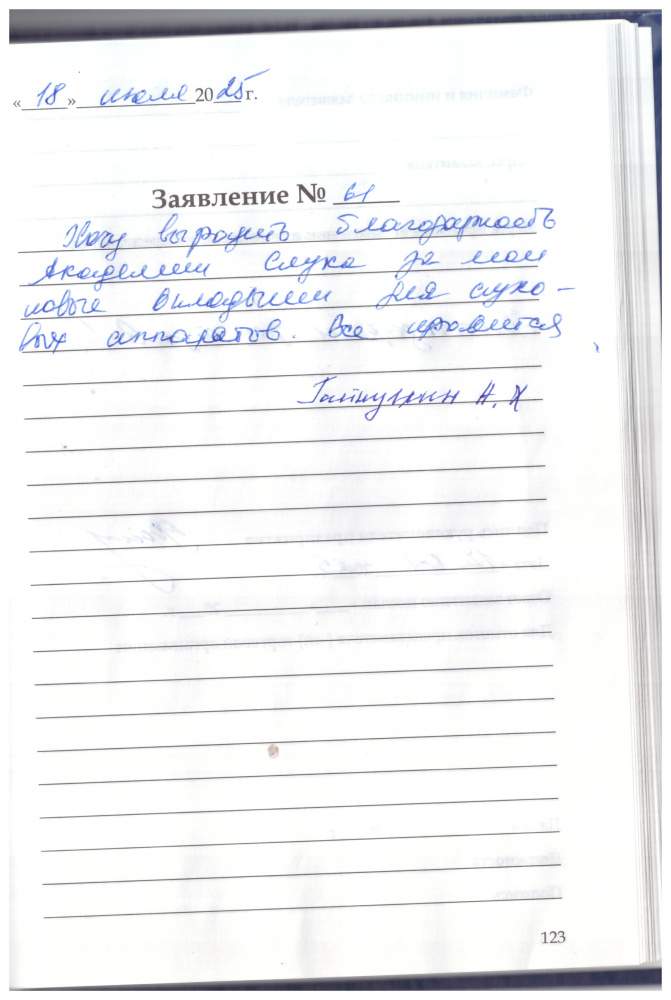 « 18 » июля 2025 г.
Заявление № 61
Хочу выразить благодарность
Академии Слуха за мои
новые вкладыши для слухо-
вых аппаратов. Все нравится
Н. Х
123